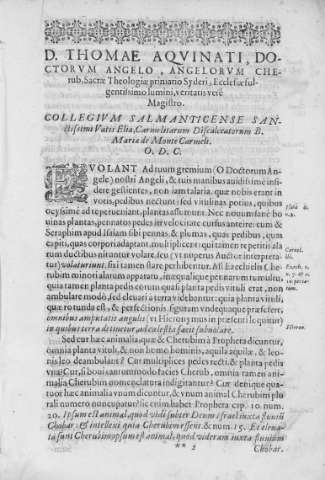 D. THOMAE AQVINATI, DO-
CTORVM ANGELO, ANGELORVM CHE-
rub. Sacræ Theologiæ primario Syderi, Ecclesiæ ful-
gentissimo lumini, veritatis verè
Magistro.
COLLEGIVM SALMANTICENSE SAN-
ctissimi Vatis Eliæ, Carmelitarum Discalceatorum B.
Mariæ de Monte Carmeli.
O. D. C.
EVOLANT Ad tuum gremium (O Doctorum An-
gele) nostri Angeli, & tuis manibus auidissime insi-
dere gestientes, non iam talaria, quæ nobis erant in
votis, pedibus nectunt: sed vitulinas potius, quibus
ocyssimè ad te perueniant, plantas assumunt. Nec
uinas plantas, pennatos pedes in velocitate cursus anteire: cum &
Seraphim apud Isaiam sibi pennas, & plumas, quas pedibus, quas
capiti, quas corpori adaptant, multiplicent: qui tamen repetiti ala-
rum ductibus nitantur volare, seu (vt nuperus Auctor interpreta-
tur) volaturiunt, sibi tamen stare perhibentur. At Ezechielis Che-
rubim minori alarum apparatu, integra
quia tamen planta pedis eorum quasi planta pedis vituli erat, non
ambulare modò, sed eleuari à terra videbantur: quia planta vituli,
quæ rotunda est, & perfectionis figuram vndequaque præsefert,
omnibus amputatis angulis (vt Hieronymus in præsenti loquitur)
in quibus terra detinetur, ad cœlestia facit subuolare.
Sed cur hæc animalia, quæ & Cherubim à Propheta dicuntur,
omnia planta vituli, & non homo hominis, aquila aquilæ, & leo-
nis leo deambulant? Cur multiplices pedes recti, & planta pedis
vna? Cur, si boui tantummodo facies Cherub, omnia tamen ani-
malia Cherubim nomenclatura indigitantur? Cur denique qua-
tuor hæc animalia vnum dicuntur, & vnum animal Cherubim plu-
rali numero nuncupatur? sic enim habet Propheta cap. 10. num.
20. Ipsum est animal, quod vidi subter Deum Israel iuxta fluuium
Chobar, & intellexi quia Cherubim essent, & num. 15. Et eleua-
ta sunt Cherubim: ipsum est animal, quod videram iuxta fluuium
** 2
Chobar.
Isaiæ 6.
n. 2.
Ezech. 1.
Hieron.